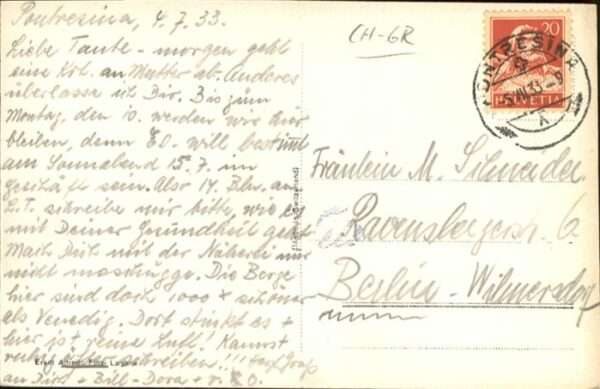 Pontresina, 4.7.33.
Liebe Tante - morgen geht
eine Krt. an Mutter ab. Anderes
überlasse ich Dir. Bis zum
Montag, den 10. werden wir hier
bleiben, denn E.O. will bestimmt
am Sonnabend 15.7. im
Geschäft sein. Also 14. Bln. an.
L.T. schreibe mir bitte, wie es
mit Deiner Gesundheit geht
Mach Dich mit der Näherei nur
nicht
Die Berge
hier sind doch 1000 x schöner
als Venedig. Dort stinkt es +
hier ist reine Luft! Kannst
ruhig schreiben!!!
an Dich + Bill - Dora + E.O.
CH-GR
20
HELVETIA
PONTRESINA
Fräulein M. Schneider
Ravensbergerstr. 6
Berlin - Wilmersdorf